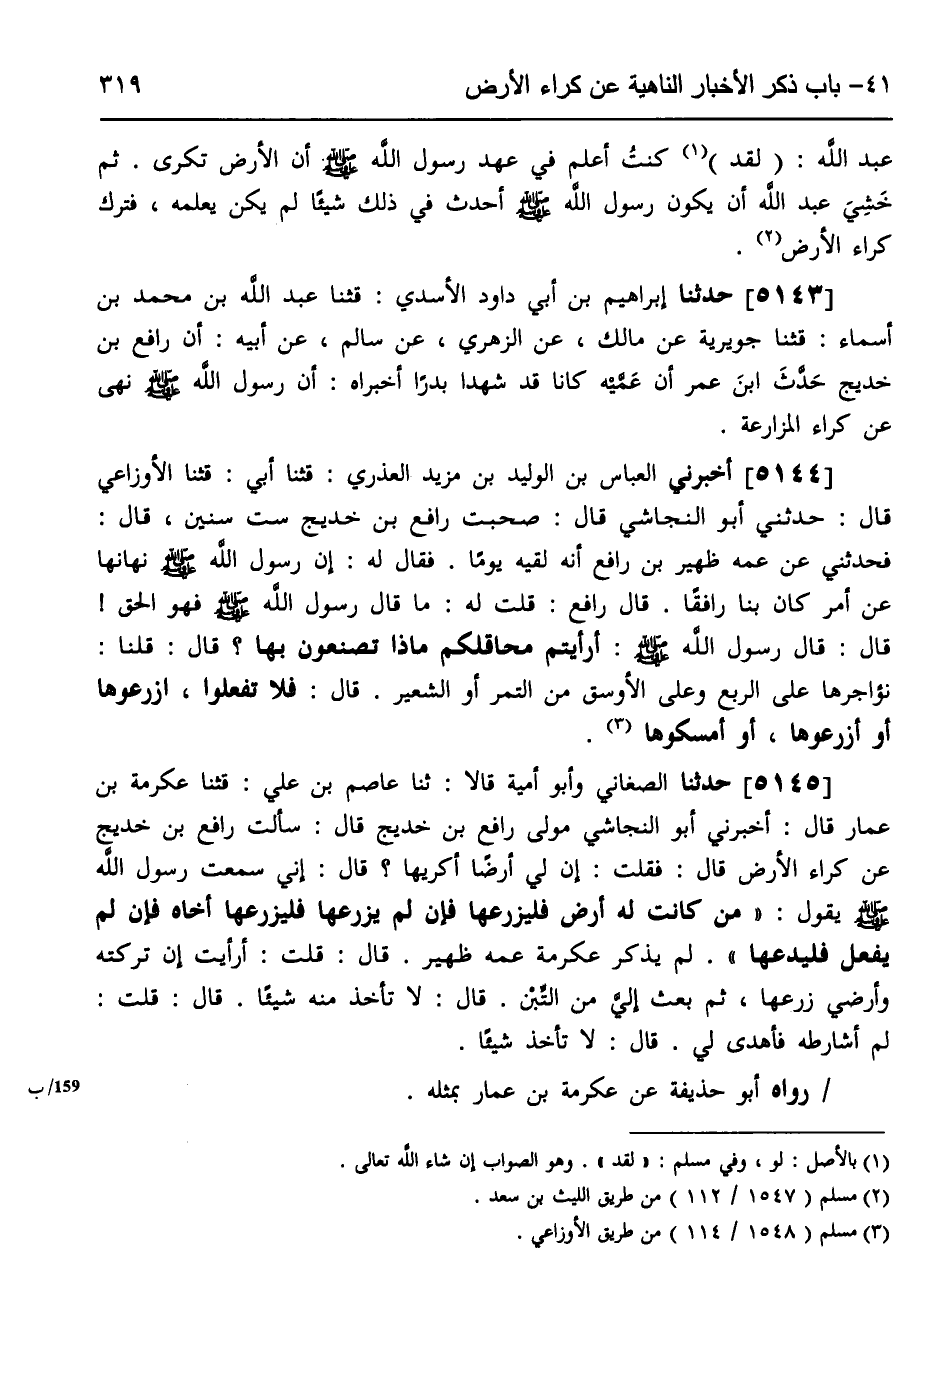 ٤١- باب ذكر الأخبار الناهية عن كراء الأرض ٣١٩
عبد اللَّه : ( لقد )(١) كنتُ أعلم في عهد رسول اللَّه ﷺ أن الأرض تكرى . ثم
خَشِيَ عبد اللَّه أن يكون رسول اللَّه ﷺ أحدث في ذلك شيئًا لم يكن يعلمه ، فترك
كراء الأرض(٢) .
[٥١٤٣] حدثنا إبراهيم بن أبي داود الأسدي : قثنا عبد اللَّه بن محمد بن
أسماء : قثنا جويرية عن مالك ، عن الزهري ، عن سالم ، عن أبيه : أن رافع بن
خديج حَدَّثَ ابنَ عمر أن عَمَّيْه كانا قد شهدا بدرًا أخبراه : أن رسول اللَّه ﷺ نهى
عن كراء المزارعة .
[٥١٤٤] أخبرني العباس بن الوليد بن مزيد العذري : قثنا أبي : قثنا الأوزاعي
قال : حدثني أبو النجاشي قال : صحبت رافع بن خديج ست سنين ، قال :
فحدثني عن عمه ظهير بن رافع أنه لقيه يومًا . فقال له : إن رسول اللَّه ﷺ نهانها
عن أمر كان بنا رافقًا . قال رافع : قلت له : ما قال رسول اللَّه ﷺ فهو الحق !
قال : قال رسول اللَّه ﷺ : أرأيتم محاقلكم ماذا تصنعون بها ؟ قال : قلنا :
نؤاجرها على الربع وعلى الأوسق من التمر أو الشعير . قال : فلا تفعلوا ، ازرعوها
أو أزرعوها ، أو أمسكوها (٣) .
[٥١٤٥] حدثنا الصغاني وأبو أمية قالا : ثنا عاصم بن علي : قثنا عكرمة بن
عمار قال : أخبرني أبو النجاشي مولى رافع بن خديج قال : سألت رافع بن خديج
عن كراء الأرض قال : فقلت : إن لي أرضًا أكريها ؟ قال : إني سمعت رسول اللَّه
ﷺ يقول : « من كانت له أرض فليزرعها فإن لم يزرعها فليزرعها أخاه فإن لم
يفعل فليدعها » . لم يذكر عكرمة عمه ظهير . قال : قلت : أرأيت إن تركته
وأرضي زرعها ، ثم بعث إليَّ من التِّبْن . قال : لا تأخذ منه شيئًا . قال : قلت :
لم أشارطه فأهدى لي . قال : لا تأخذ شيئًا .
/ رواه أبو حذيفة عن عكرمة بن عمار بمثله . 159/ب
(١) بالأصل : لو ، وفي مسلم : « لقد » . وهو الصواب إن شاء اللَّه تعالى .
(٢) مسلم ( ١٥٤٧ / ١١٢ ) من طريق الليث بن سعد .
(٣) مسلم ( ١٥٤٨ / ١١٤ ) من طريق الأوزاعي .